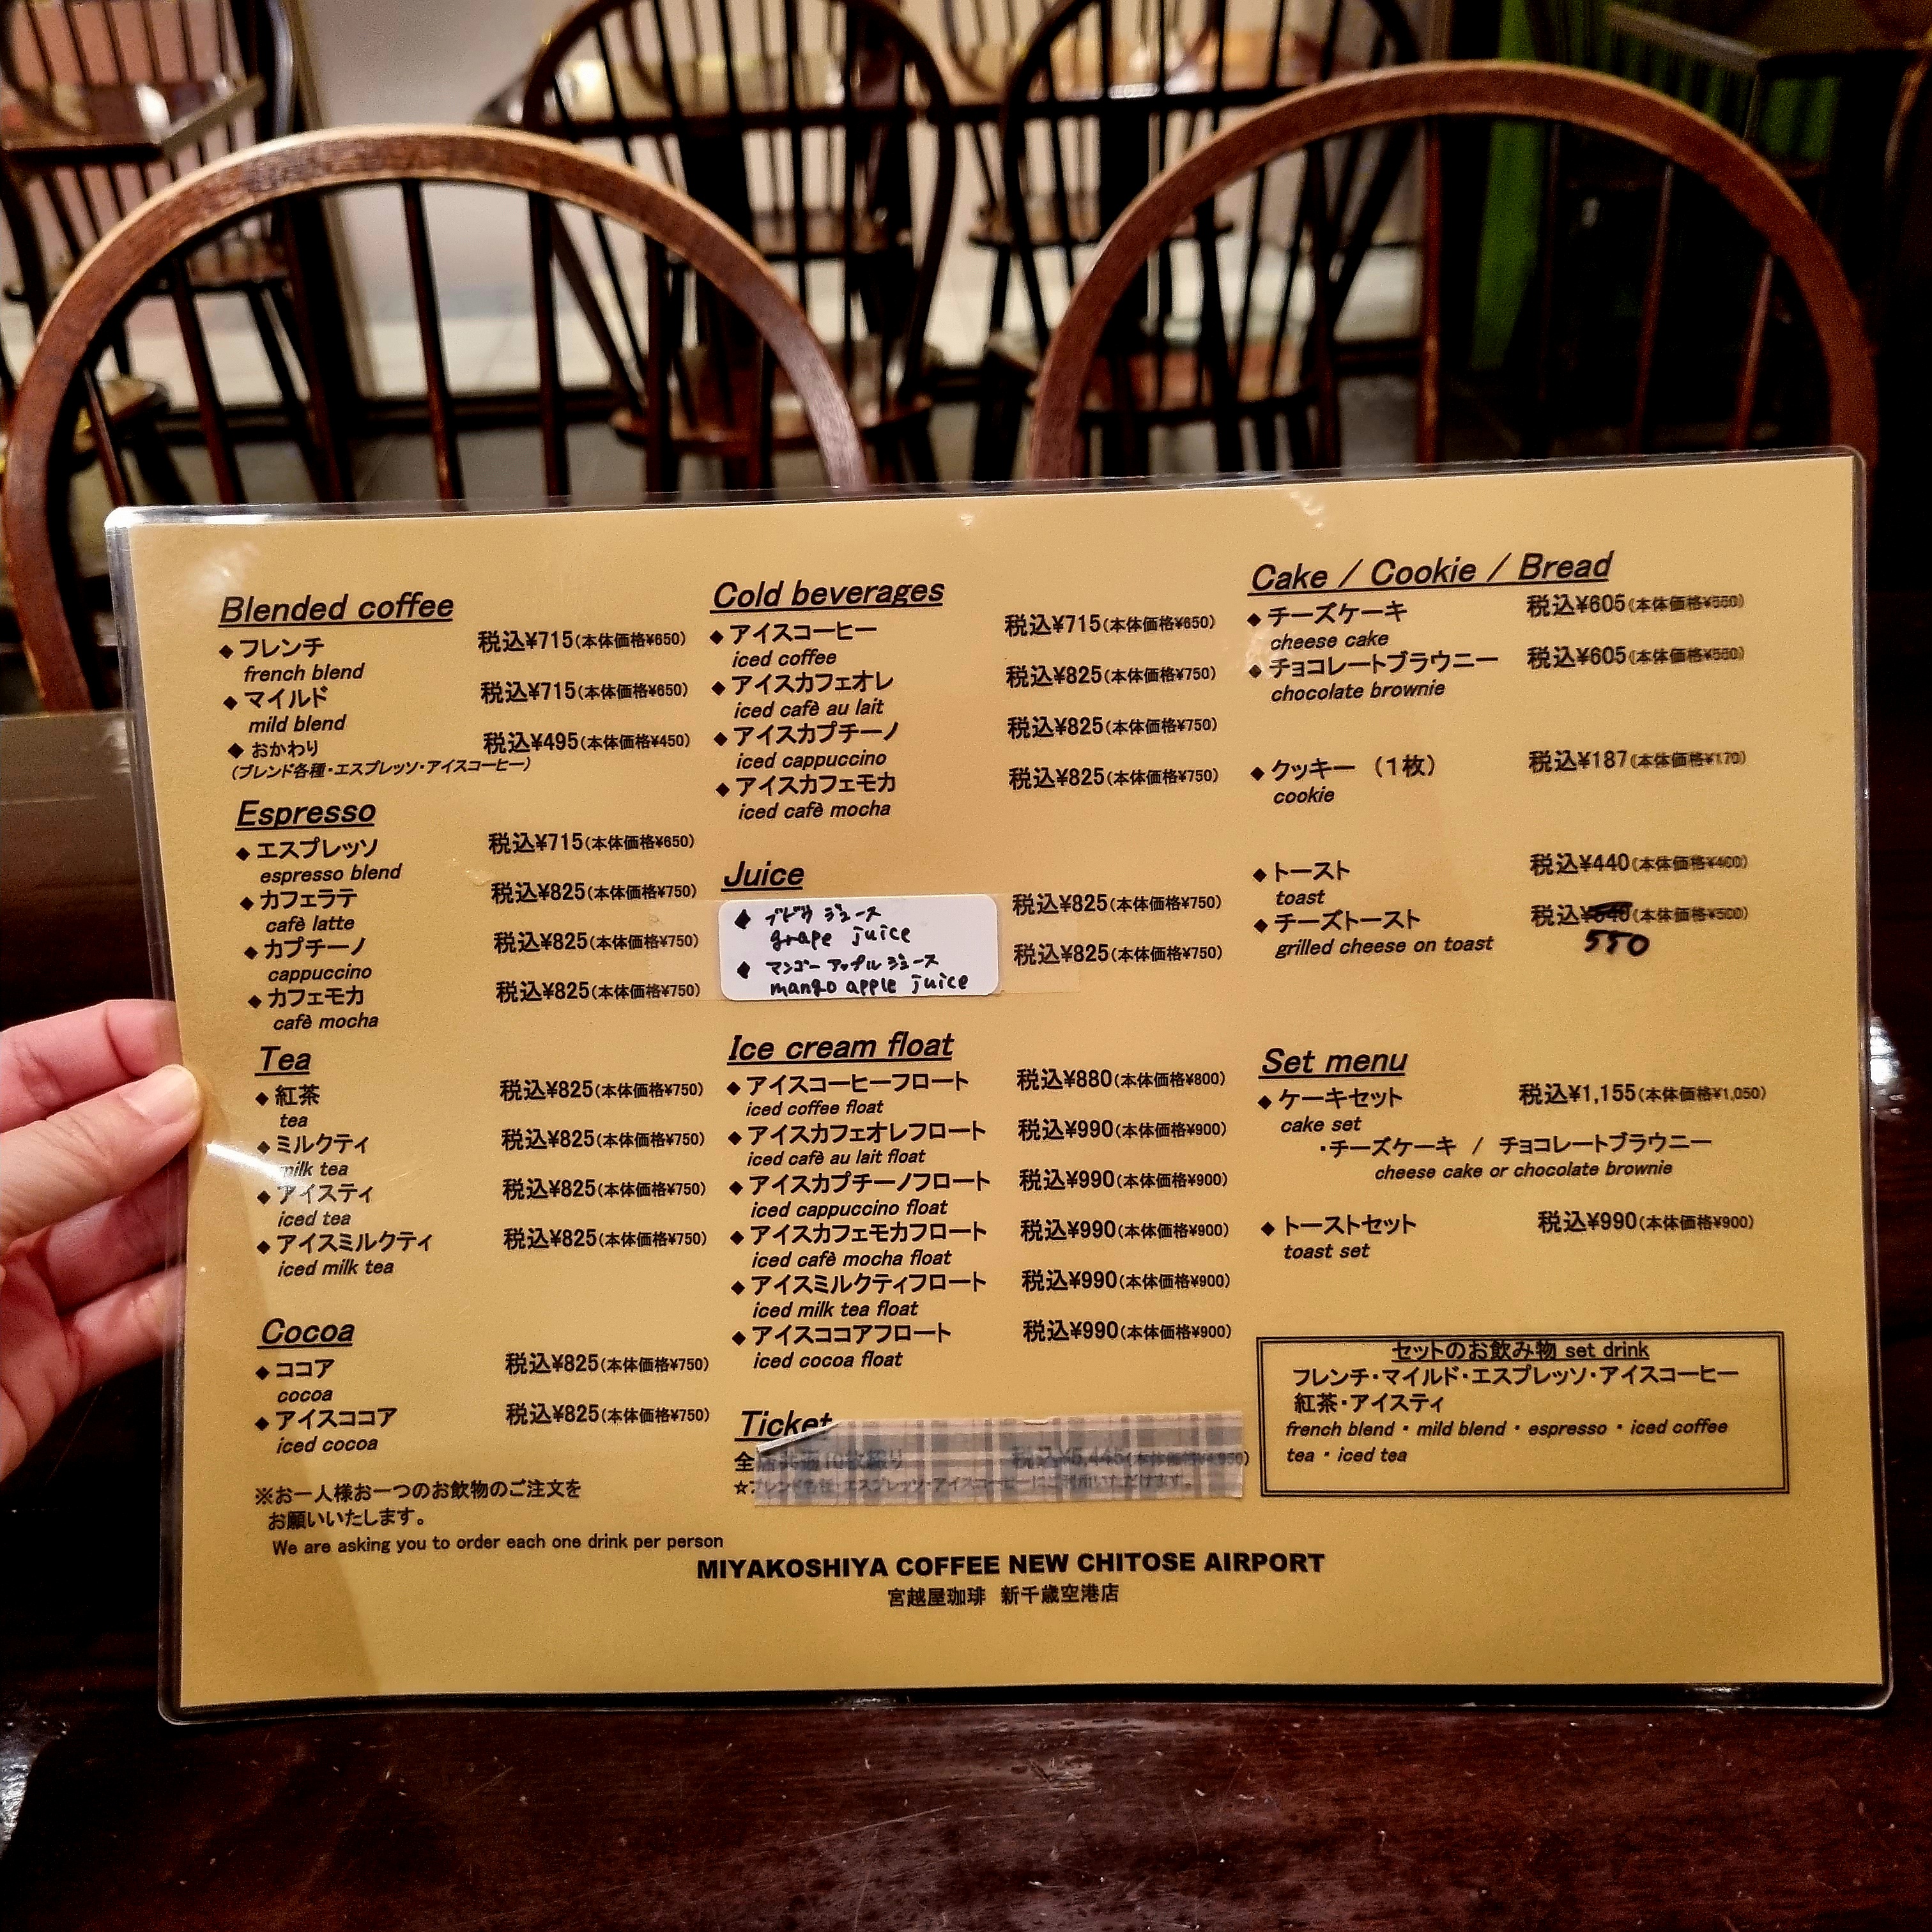 Blended coffee
◆フレンチ 税込¥715(本体価格¥650)
french blend
◆マイルド 税込¥715(本体価格¥650)
mild blend
◆おかわり 税込¥495(本体価格¥450)
(ブレンド各種・エスプレッソ・アイスコーヒー)
Espresso
◆エスプレッソ 税込¥715(本体価格¥650)
espresso blend
◆カフェラテ 税込¥825(本体価格¥750)
cafè latte
◆カプチーノ 税込¥825(本体価格¥750)
cappuccino
◆カフェモカ 税込¥825(本体価格¥750)
cafè mocha
Tea
◆紅茶 税込¥825(本体価格¥750)
tea
◆ミルクティ 税込¥825(本体価格¥750)
milk tea
◆アイスティ 税込¥825(本体価格¥750)
iced tea
◆アイスミルクティ 税込¥825(本体価格¥750)
iced milk tea
Cocoa
◆ココア 税込¥825(本体価格¥750)
cocoa
◆アイスココア 税込¥825(本体価格¥750)
iced cocoa
※お一人様お一つのお飲物のご注文を
お願いいたします。
We are asking you to order each one drink per person
Cold beverages
◆アイスコーヒー 税込¥715(本体価格¥650)
iced coffee
◆アイスカフェオレ 税込¥825(本体価格¥750)
iced cafè au lait
◆アイスカプチーノ 税込¥825(本体価格¥750)
iced cappuccino
◆アイスカフェモカ 税込¥825(本体価格¥750)
iced cafè mocha
Juice
◆ブドウジュース 税込¥825(本体価格¥750)
grape juice
◆マンゴーアップルジュース 税込¥825(本体価格¥750)
mango apple juice
Ice cream float
◆アイスコーヒーフロート 税込¥880(本体価格¥800)
iced coffee float
◆アイスカフェオレフロート 税込¥990(本体価格¥900)
iced cafè au lait float
◆アイスカプチーノフロート 税込¥990(本体価格¥900)
iced cappuccino float
◆アイスカフェモカフロート 税込¥990(本体価格¥900)
iced cafè mocha float
◆アイスミルクティフロート 税込¥990(本体価格¥900)
iced milk tea float
◆アイスココアフロート 税込¥990(本体価格¥900)
iced cocoa float
Ticket
全店共通10枚綴り 税込¥5,445(本体価格¥4,950)
☆ブレンド各種・エスプレッソ・アイスコーヒーにご利用いただけます。
Cake / Cookie / Bread
◆チーズケーキ 税込¥605(本体価格¥550)
cheese cake
◆チョコレートブラウニー 税込¥605(本体価格¥550)
chocolate brownie
◆クッキー (1枚) 税込¥187(本体価格¥170)
cookie
◆トースト 税込¥440(本体価格¥400)
toast
◆チーズトースト 税込 (本体価格¥500)
550
grilled cheese on toast
Set menu
◆ケーキセット 税込¥1,155(本体価格¥1,050)
cake set
・チーズケーキ / チョコレートブラウニー
cheese cake or chocolate brownie
◆トーストセット 税込¥990(本体価格¥900)
toast set
セットのお飲み物 set drink
フレンチ・マイルド・エスプレッソ・アイスコーヒー
紅茶・アイスティ
french blend・mild blend・espresso・iced coffee
tea・iced tea
MIYAKOSHIYA COFFEE NEW CHITOSE AIRPORT
宮越屋珈琲 新千歳空港店